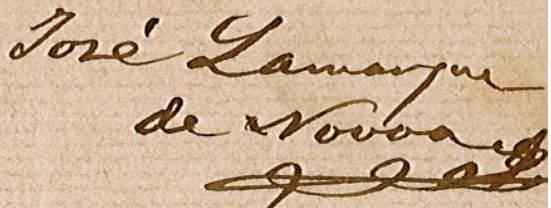 José Lamarque
de Novoa